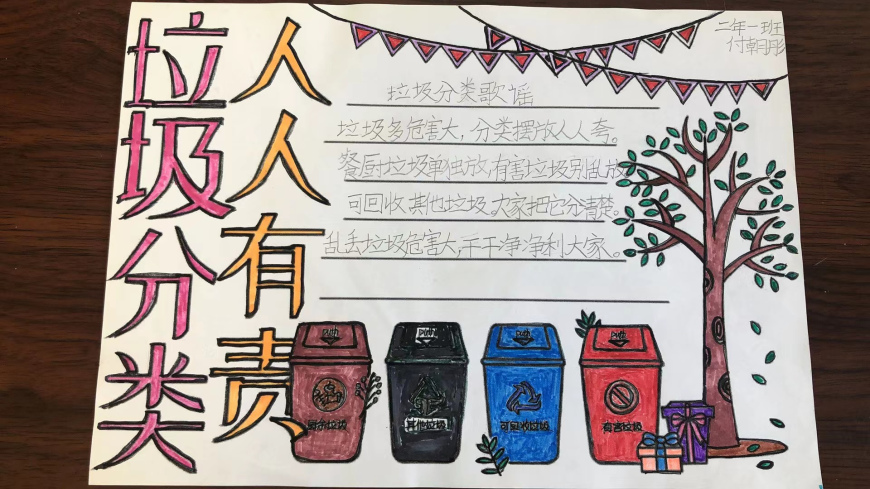 垃圾分类
人人有责
二年一班
付朝彤
垃圾分类歌谣
垃圾多危害大,分类摆放人人夸。
餐厨垃圾单独放,有害垃圾别乱放
可回收其他垃圾,大家把它分清楚。
乱丢垃圾危害大,干干净净利大家。
其他垃圾
可回收垃圾
有害垃圾